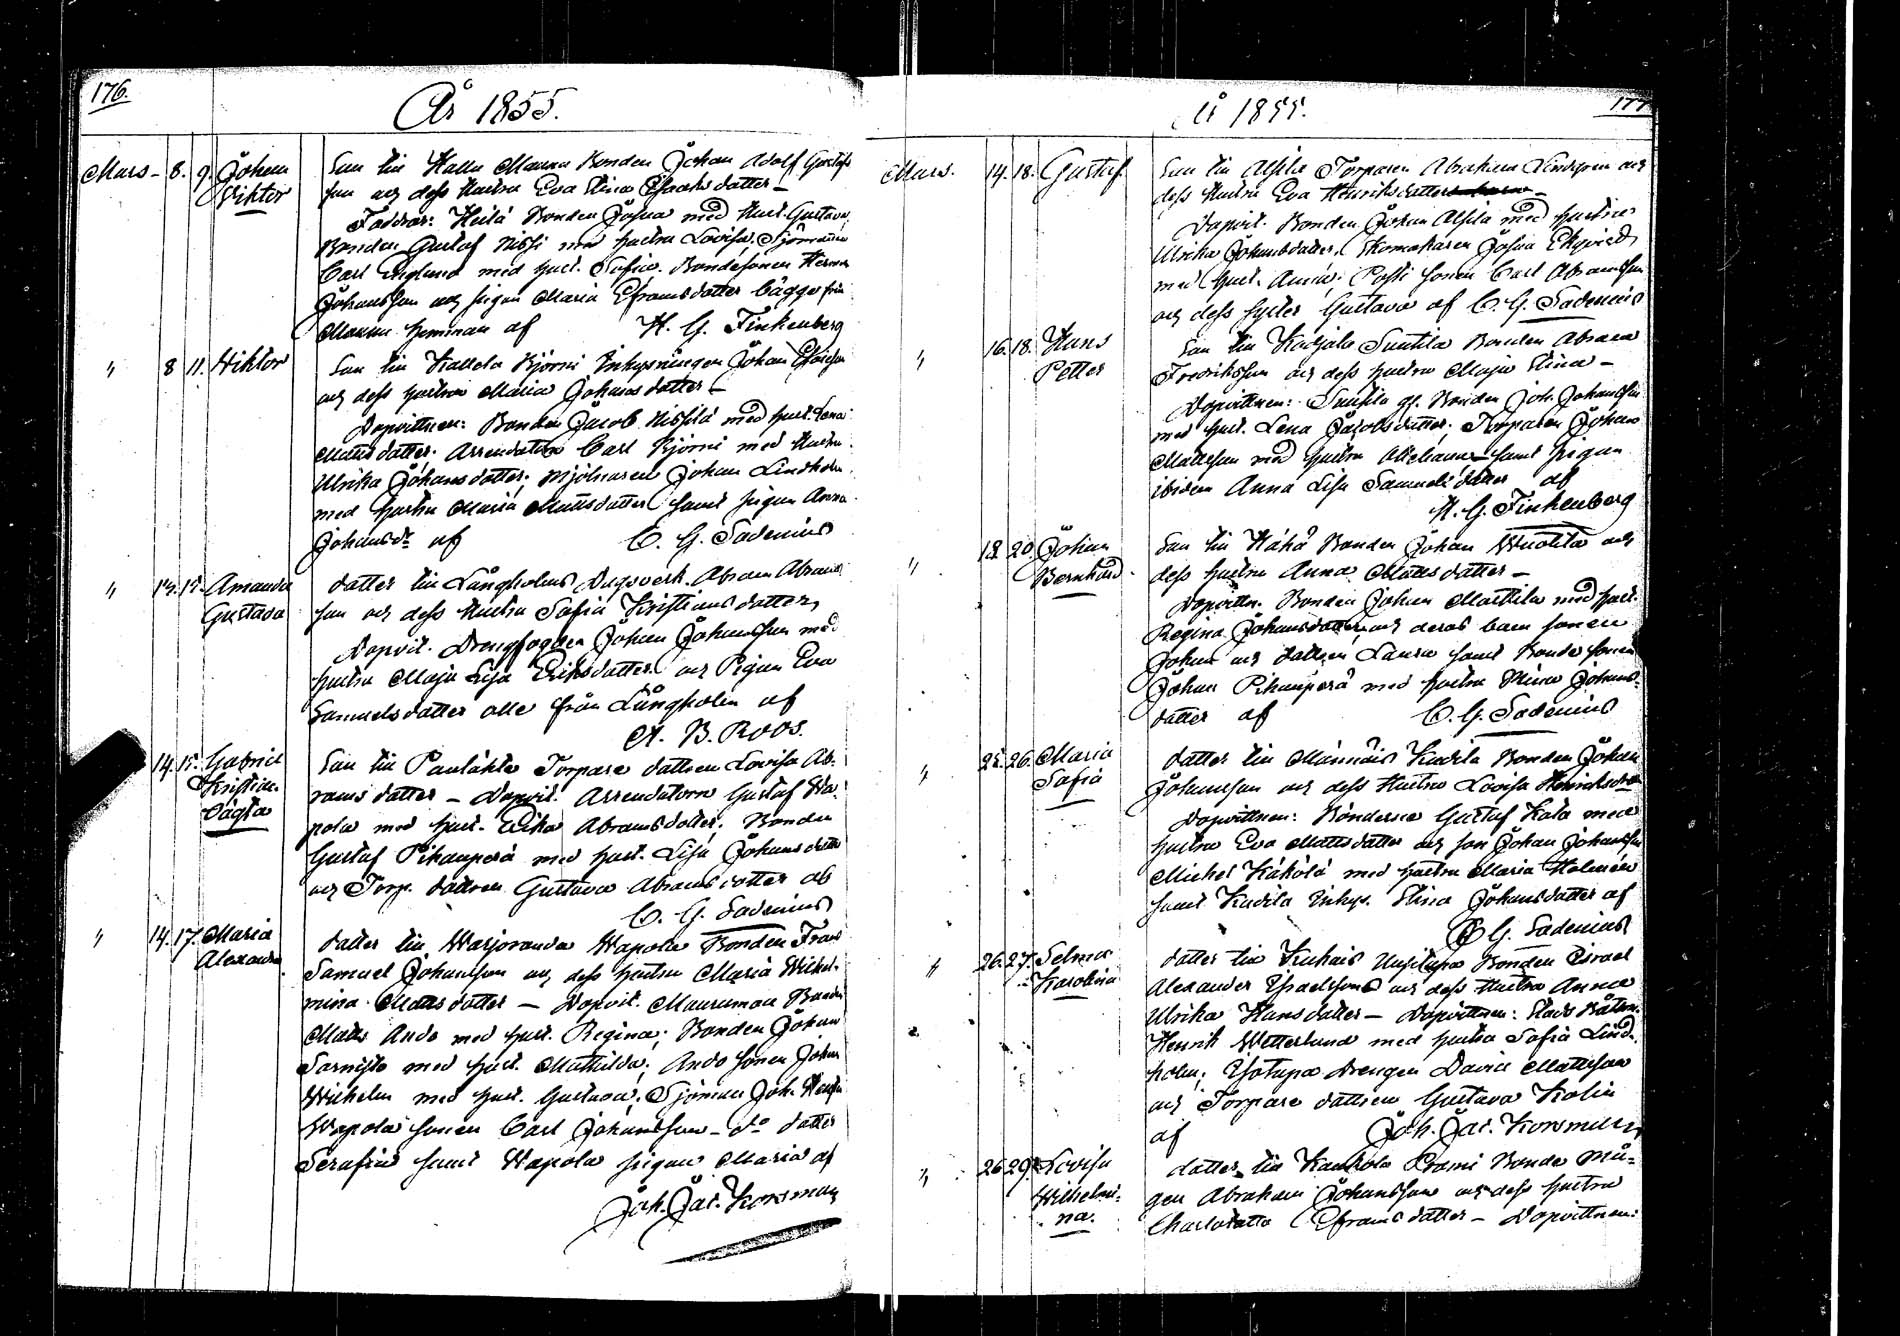 176.
År 1855.
Mars - 8. 9. Johan Viktor
Son till Bonden Johan Adolf Gustafs
son och dess Hustru Eva Stina Isaksdatter -
Faddrar: Heilä Bonden Josua med Hust. Gustava,
Bonden Gustaf Nissi med hustru Lovisa. Sjömannen
Carl Englund med hust. Sofia. Bondesonen Herman
Johansson och pigan Maria Eframsdatter bägge från
hemman af H. G. Finkenberg
" 8 11. Viktor
Son till Kallela Björni Inhysningen Johan
och dess hustru Maria Johansdatter -
Dopvittnen: Bonden Jacob Nissilä med hust. Lena
Mattsdatter. Arrendatorn Carl Björni med Hustru
Ulrika Johansdatter; Mjölnaren Johan Lindholm
med hustru Maria Mattsdatter samt pigan Anna
Johansdr af C. G. Sadenius
" 13. 15. Amanda Gustava
datter till Långholms Dagsverk. Abram Abram
son och dess Hustru Sofia Kristiansdatter,
Dopvit. Drengfogden Johan Johansson med
hustru Maja Lisa Eriksdatter och Pigan Eva
Samuelsdatter alla från Långholm af
A. B. Roos.
14. 15. Gabriel Kristian. Oägta
Son till Torpare dattren Lovisa Ab-
ramsdatter - Dopvit. Arrendatorn Gustaf Wa-
pola med hust. Ulrika Abramsdatter. Bonden
Gustaf Pihanperä med hust. Lisa Johansdatter
och Torp. dattren Gustava Abramsdatter ab
C. G. Sadenius
" 14. 17. Maria Alexandra
datter till Warjoranda Wapola Bonden Frans
Samuel Johansson och dess hustru Maria Wilhel-
mina Mattsdatter - Dopvit. Bonden
Matts Ando med hust. Regina; Bonden Johan
Sarnisto med hust. Mathilda. Ando sonen Johan
Wilhelm med hust. Gustava; Sjöman Joh.
Wapola sonen Carl Johansson - do datter
Serafina samt Wapola pigan Maria af
Joh. Jac. Korsman
177
År 1855.
Mars. 14. 18. Gustaf
Son till Alsila Torparen Abraham Lindgren och
dess Hustru Eva Henriksdatter -
Dopvit. Bonden Johan Alsila med hustru
Ulrika Johansdatter. Skomakaren Josua Ekqvist
med hust. Anna; Posti sonen Carl Abramsson
och dess syster Gustava af C. G. Sadenius
" 16. 18. Hans Petter
Son till Suutila Bonden Abram
Fredriksson och dess hustru Maja Stina -
Dopvittnen: Suutila gl. Bonden Joh. Johansson
med hust. Lena Jacobsdatter; Torparen Johan
Mattsson med hustru samt pigan
ibidem Anna Lisa Samuelsdatter af
H. G. Finkenberg
" 18. 20. Johan Bernhard.
Son till Bonden Johan Wuolila och
dess hustru Anna Mattsdatter -
Dopvittn. Bonden Johan Mattila med hust.
Regina Johansdatter och deras barn sonen
Johan och dattren Laura samt Bonde sonen
Johan Pihanperä med hustru Stina Johans-
datter af C. G. Sadenius
" 25. 26. Maria Sofia
datter till Männäis Kudila Bonden Johan
Johansson och dess Hustru Lovisa
Dopvittnen: Bönderne Gustaf Kola med
hustru Eva Mattsdatter och son Johan Johansson
Michel Käkölä med hustru Maria Helenius
samt Kudila Inhys. Stina Johansdatter af
C. G. Sadenius
" 26. 27. Selma Karolina
datter till Kuhais Uusitupa Bonden Israel
Alexander Israelsson och dess Hustru Anna
Ulrika Hansdatter - Dopvittnen: Stads Båtsm.
Henrik Wetterlund med hustru Sofia Lind-
holm; Isotupa Drengen David Mattsson
och Torpare dattren Gustava Kolin
af Joh. Jac. Korsman
" 26. 29. Lovisa Wilhelmi- na.
datter till Prami Bonde Må-
gen Abraham Johansson och dess hustru
Charlotta Eframsdatter - Dopvittnen: